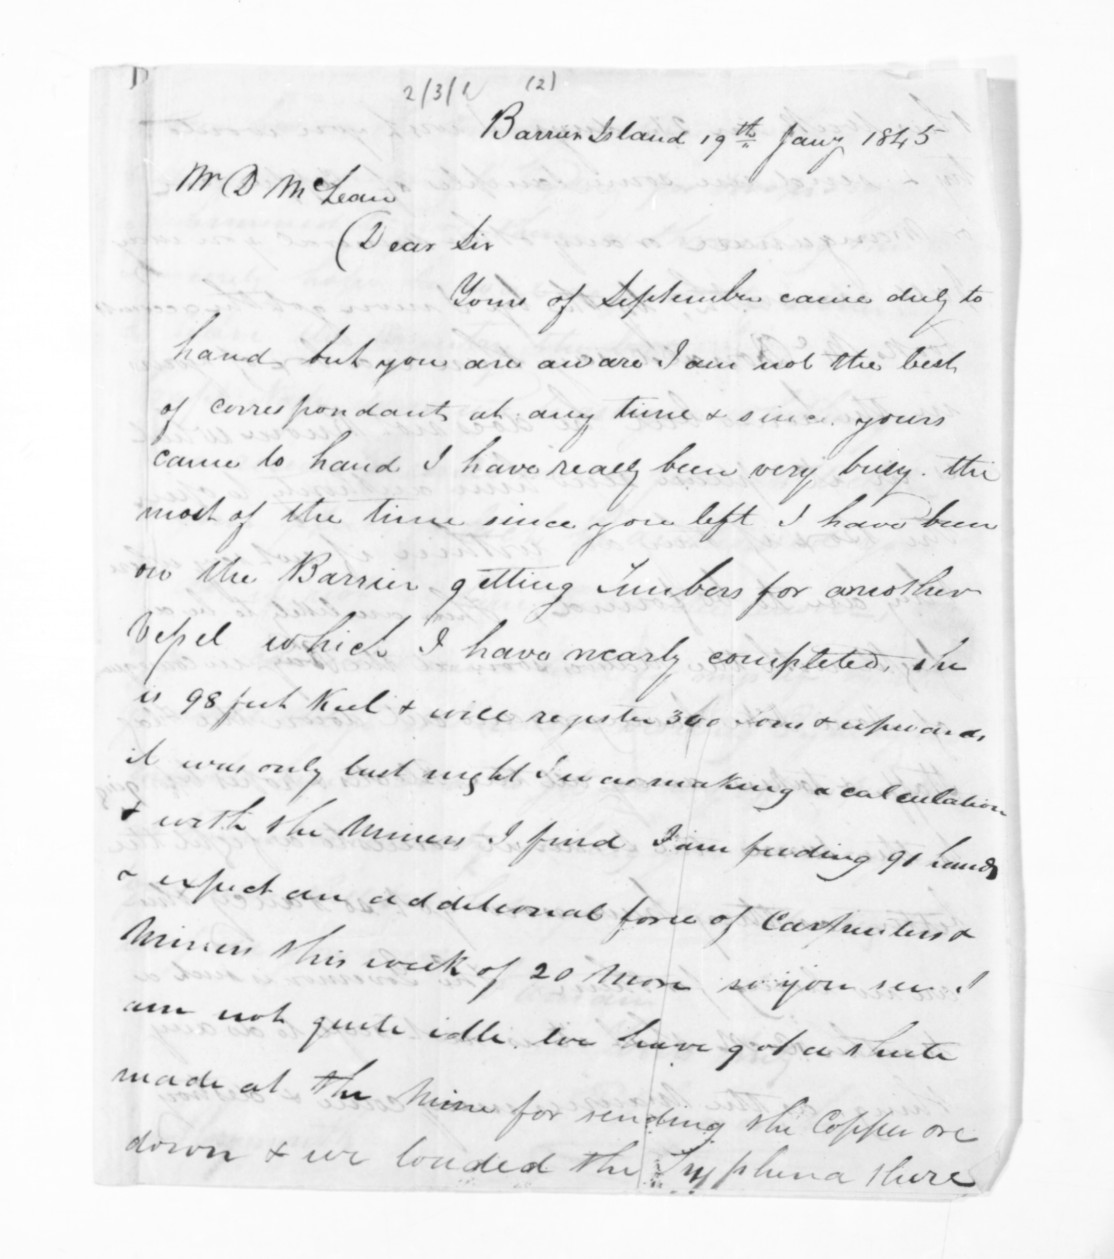 2/3/1 (2)
Barrier Island 19th Jany 1845
Mr D McLean
Dear Sir
Yours of September came duly to
hand but you are aware I am not the best
of correspondants at any time & since yours
came to hand I have really been very busy. the
most of the time since you left I have been
on the Barrier getting Timbers for another
Vessel which I have nearly completed, she
is 98 feet Keel & will register 300 tons & upwards
it was only last night I was making a calculation
& with the Miners I find I am feeding 91 hands
& expect an additional force of Carpenters &
Miners this week of 20 More so you see I
am not quite idle. We have got a shute
made at the Mine for sending the Copper ore
down & we loaded the Tryphena there